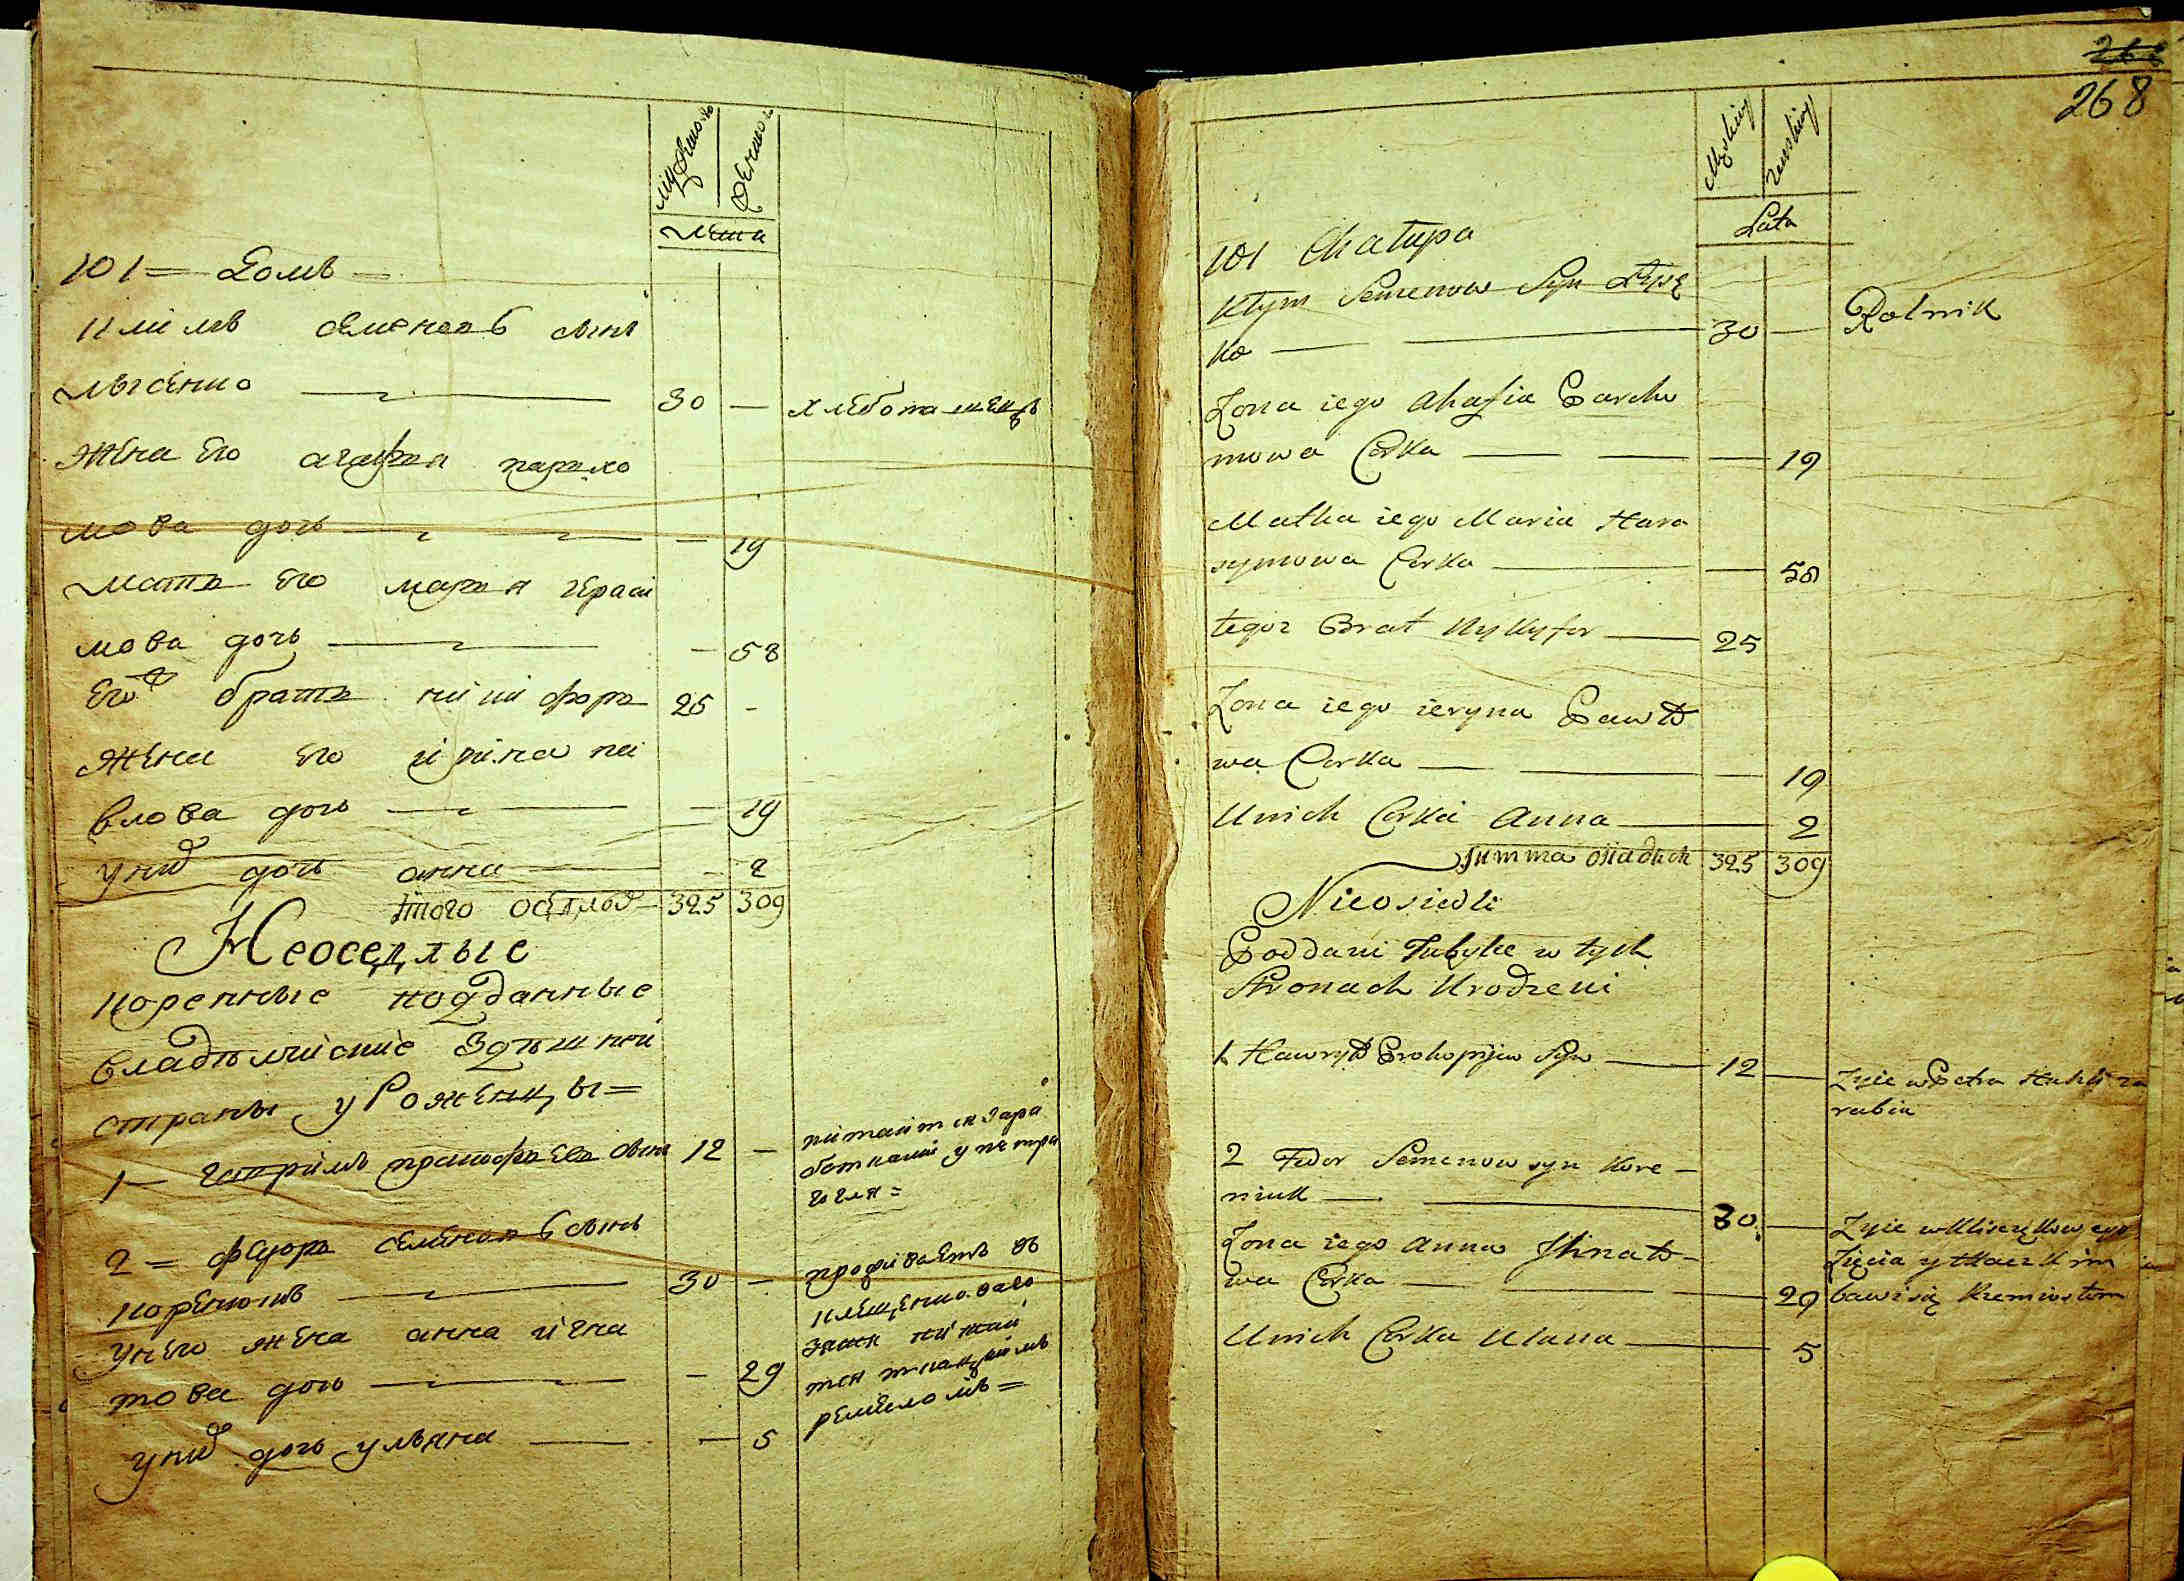 мужеско
женско
лета
101 = Домъ =
Климъ Семеновъ сынъ
Лысенко 30 — хлебопашецъ
Жена его агафья пархо
мова дочь — 19
мать его марья гераси
мова дочь — 58
его братъ никифоръ 25 -
жена его ирина па
влова дочь — 19
у них дочь анна — 2
итого оселых 325 309
Неоседлые
коренные подданные
владелческие здешней
страны уроженцы =
1 — гаврилъ прокофьевъ сынъ 12 — питаится зара
ботками у петра
гугля =
2 = федоръ семеновъ сынъ
коренюкъ 30 — проживаетъ въ
клещенкового
зятя питаи
тся ткацкимъ
ремесломъ =
у него жена анна игна
това дочь — 29
у них дочь ульяна — 5
268
Męskiey
Zenskiey
Lata
101 Chałupa
Kłym Semenow Syn Łyse
ko 30 — Rolnik
Zona iego Ahafia Parcho
mowa Corka — 19
Matka iego Maria Hara
symowa Corka — 58
tegoz Brat Nykyfor 25
Zona iego ieryna Pawło
wa Corka — 19
Unich Corka Anna — 2
Summa osiadłich 325 309
Nieosiedli
Poddani Tubylce w tych
Stronach Urodzeni
1 Hawryło Prokopijew Syn 12 — Zyie w Petra Huhli za
rabia
2 Fedor Semenow syn Kore-
niuk 30 — Zyie w Kliszczękowego
Zięcia y tkackim
bawi się Rzemiosłem
Zona iego Anna Ihnato-
wa Corka — 29
Unich Corka Ulana — 5